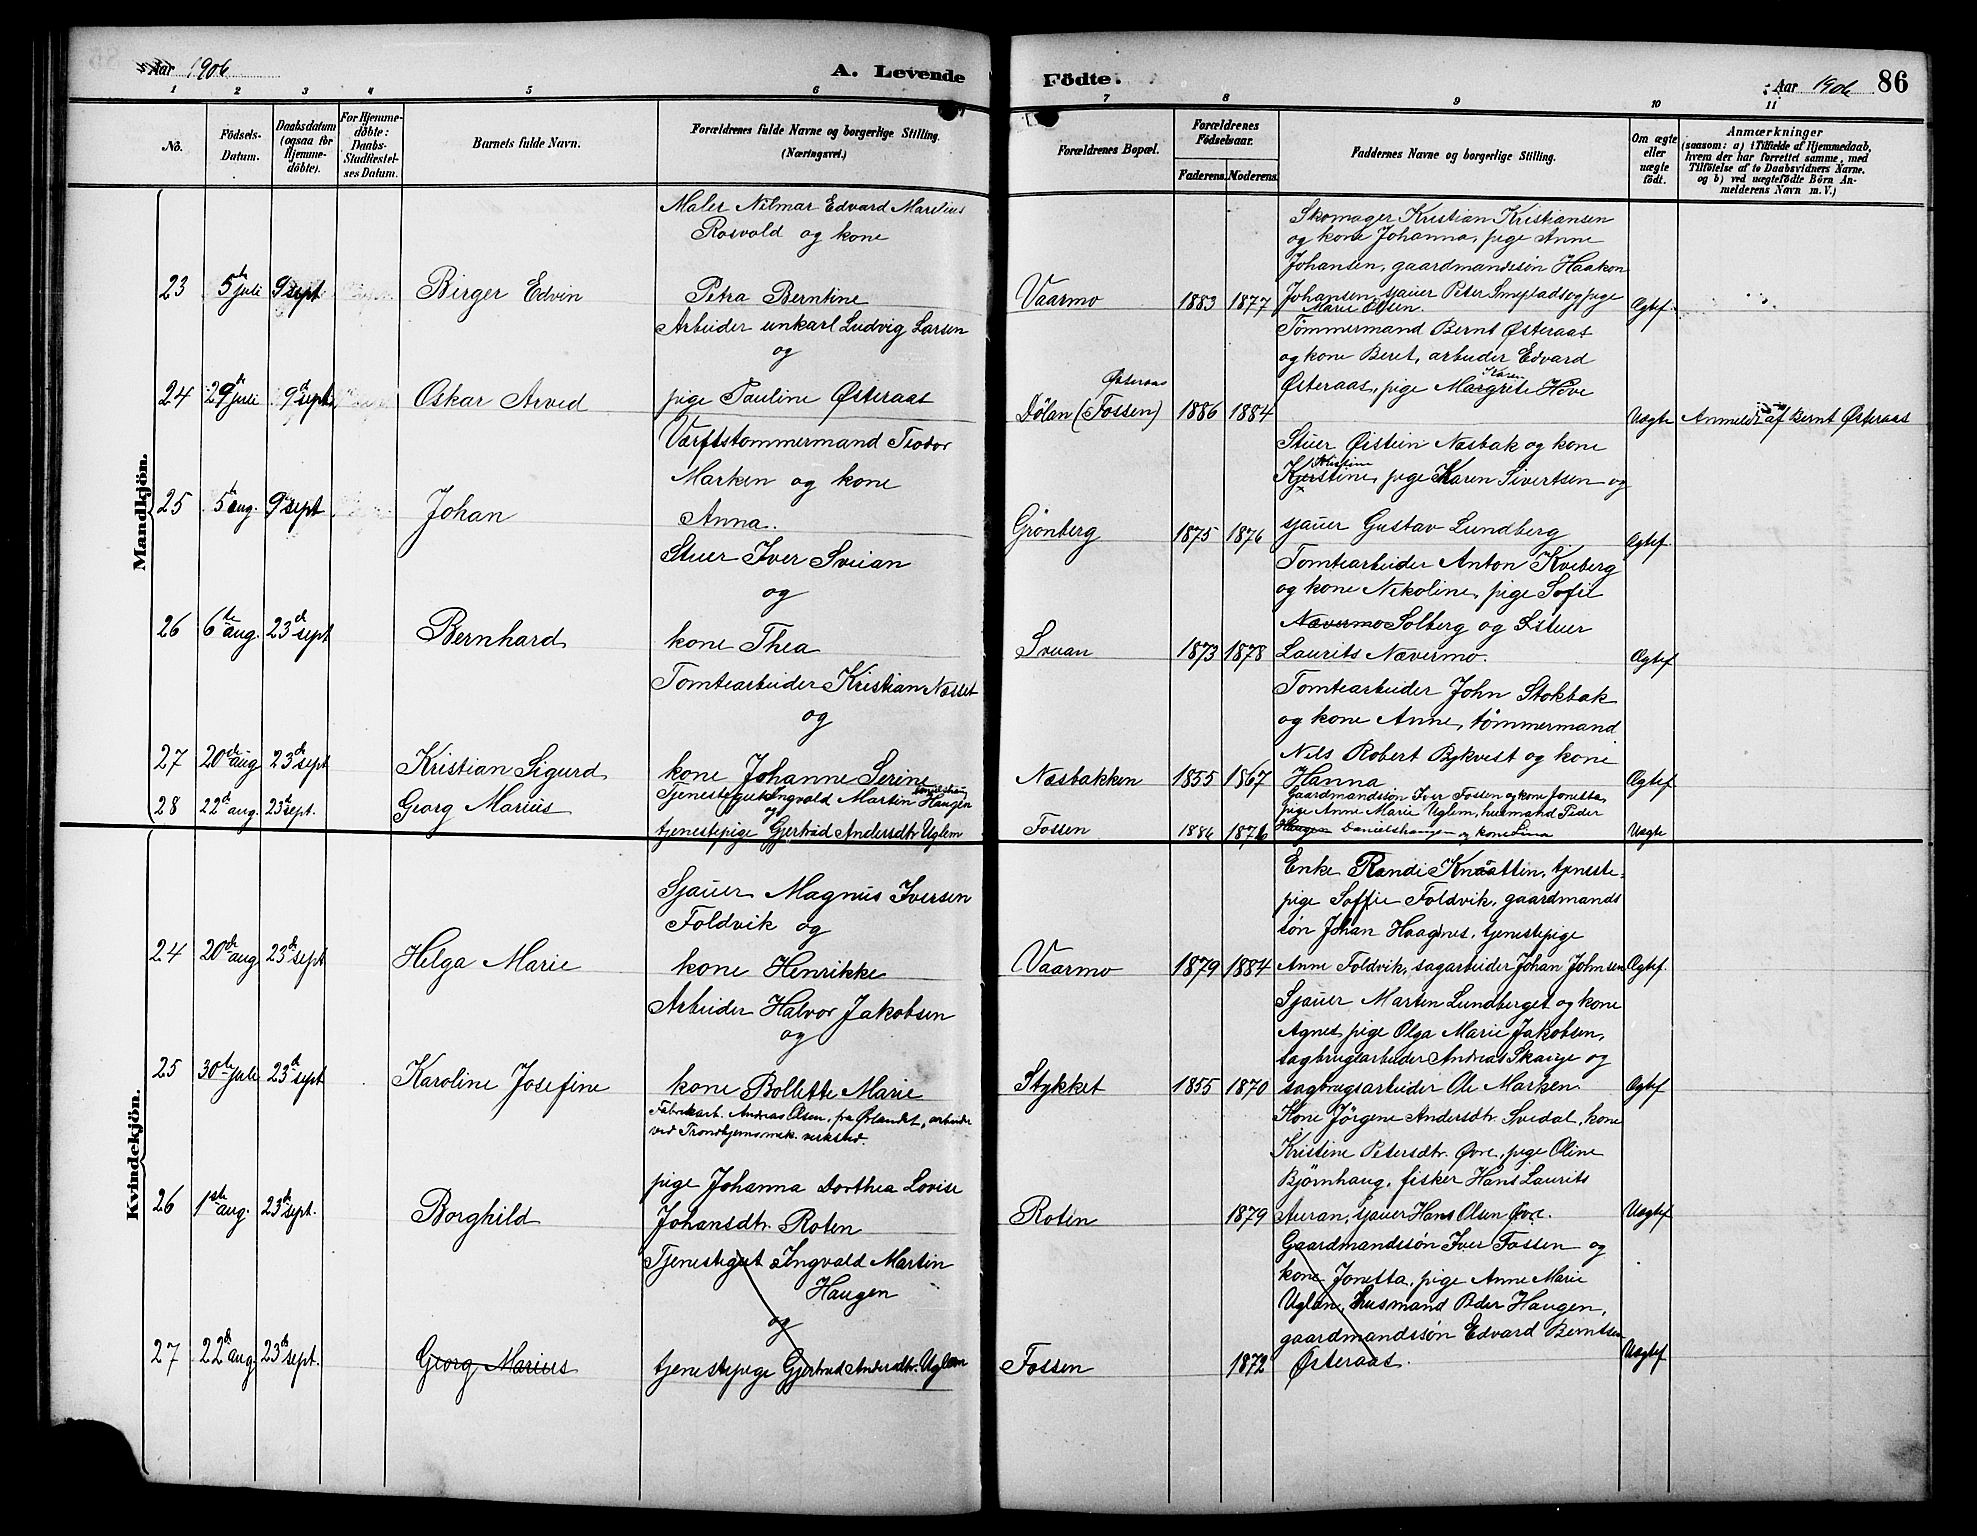 Aar 1906
A. Levende
Födte.
Aar 1906
86
1 2 3 4 5 6 7 8 9 10 11
No.
Födsels-
Datum.
Daabsdatum
(ogsaa for
Hjemme-
döbte).
For Hjemme-
döbte:
Daabs-
Stadfæstel-
ses Datum.
Barnets fulde Navn.
Forældrenes fulde Navne og borgerlige Stilling.
(Næringsvei.)
Forældrenes Bopæl.
Forældrenes
Födselsaar.
Faderens. Moderens.
Faddernes Navne og borgerlige Stilling.
Om ægte
eller
uægte
födt.
Anmærkninger
(saasom: a) i Tilfælde af Hjemmedaab,
hvem der har forrettet samme, med
Tilföielse af to Daabsvidners Navne.
og b) ved uægtefödte Börn An-
melderens Navn m. V.)
Mandkjön.
23 5te juli 9de sept Birger Edvin
Maler Nilmar Edvard Marelius
Rosvold og kone
Petra Berntine
Vaarmo 1883 1877
Skomager Kristian Kristiansen
og kone Johanna, pige Anne
Johansen, gaardmandssøn Haakon
Johansen, sjauer Peter Smeplads og pige
Marie Olsen.
Ægtef.
24 29de juli 9de sept. Oskar Arved
Arbeider unkarl Ludvig Larsen
og
pige Pauline Østeraas
Østeraas
Dölan (Fossen) 1886 1884
Tømmermand Bernt Østeraas
og kone Beret, arbeider Edvard
Østeraas, pige Margrete Hove
Uægte Anmeldt af Bernt Østeraas
25 5te aug. 9de sept Johan
Værftstømmermand Teodor
Marken og kone
Anna.
Grönberg 1875 1876
Stuer Øistein Næsbak og kone
Kristine
Kjerstine, pige Karen Sivertsen og
sjauer Gustav Lundberg
Ægtef.
26 6te aug. 23de sept Bernhard
Stuer Iver Sveian
og
kone Thea
Sveian 1873 1878
Tomtearbeider Anton Kviberg
og kone Nikoline, pige Sofie
Nævermo Solberg og Stuer
Laurits Nævermo.
Ægtef
27 20de aug 23de sept Kristian Sigurd
Tomtearbeider Kristian Næsset
og
kone Johanne Serine
Næsbakken 1855 1867
Tomtearbeider John Stokbak
og kone Anne, tømmermand
Nils Robert Bykvist og kone
Hanna
Ægtef
28 22de aug. 23de sept. Georg Marius
Tjenestegut Ingvald Martin Haugen
og
tjenestepige Gjertrud Andersdtr. Uglem
Fossen 1886 1876
Gaardmandssøn Iver Fossen og kone Jonetta,
pige Anne Marie Uglem, husmand Peder
Haugen Danielshaugen og kone Lina
Uægte
Kvindekjön.
24 20de aug 23de sept Helga Marie
Sjauer Magnus Iversen
Foldvik og
kone Henrikke
Vaarmo 1879 1884
Enke Randi Knaatten, tjeneste-
pige Soffie Foldvik, gaardmands
søn Johan Haagnes, tjenestepige
Anne Foldvik, sagarbeider Johan Johnsen
Ægtef.
25 30te juli 23de sept Karoline Josefine
Arbeider Halvor Jakobsen
og
kone Bollette Marie
Stykket 1855 1870
Sjauer Martin Lundberget og kone
Agnes, pige Olga Marie Jakobsen,
sagbrugsarbeider Andreas Skauge og
sagbrugsarbeider Ole Marken.
Ægtef
26 1ste aug. 23de sept. Borghild
Fabrikarb. Andreas Olsen, fra Ørlandet, arbeider
ved Trondhjems mek. verksted.
pige Johanna Dorthea Lovise
Johansdtr. Roten
Roten 1879
Kone Jörgene Andersdtr. Svedal, kone
Kristine Petersdtr. Øvre, pige Oline
Bjørnhaug, fisker Hans Laurits
Auran, sjauer Hans Olsen Øvre.
Uægtef
27 22de aug 23de sept. Georg Marius
Tjenestegut Ingvald Martin
Haugen
og
tjenestepige Gjertrud Andersdtr. Uglem
Fossen 1872
Gaardmandssøn Iver Fossen og
kone Jonetta, pige Anne Marie
Uglem, husmand Peder Haugen,
gaardmandssøn Edvard Berntsen
Østeraas.
Uægtef